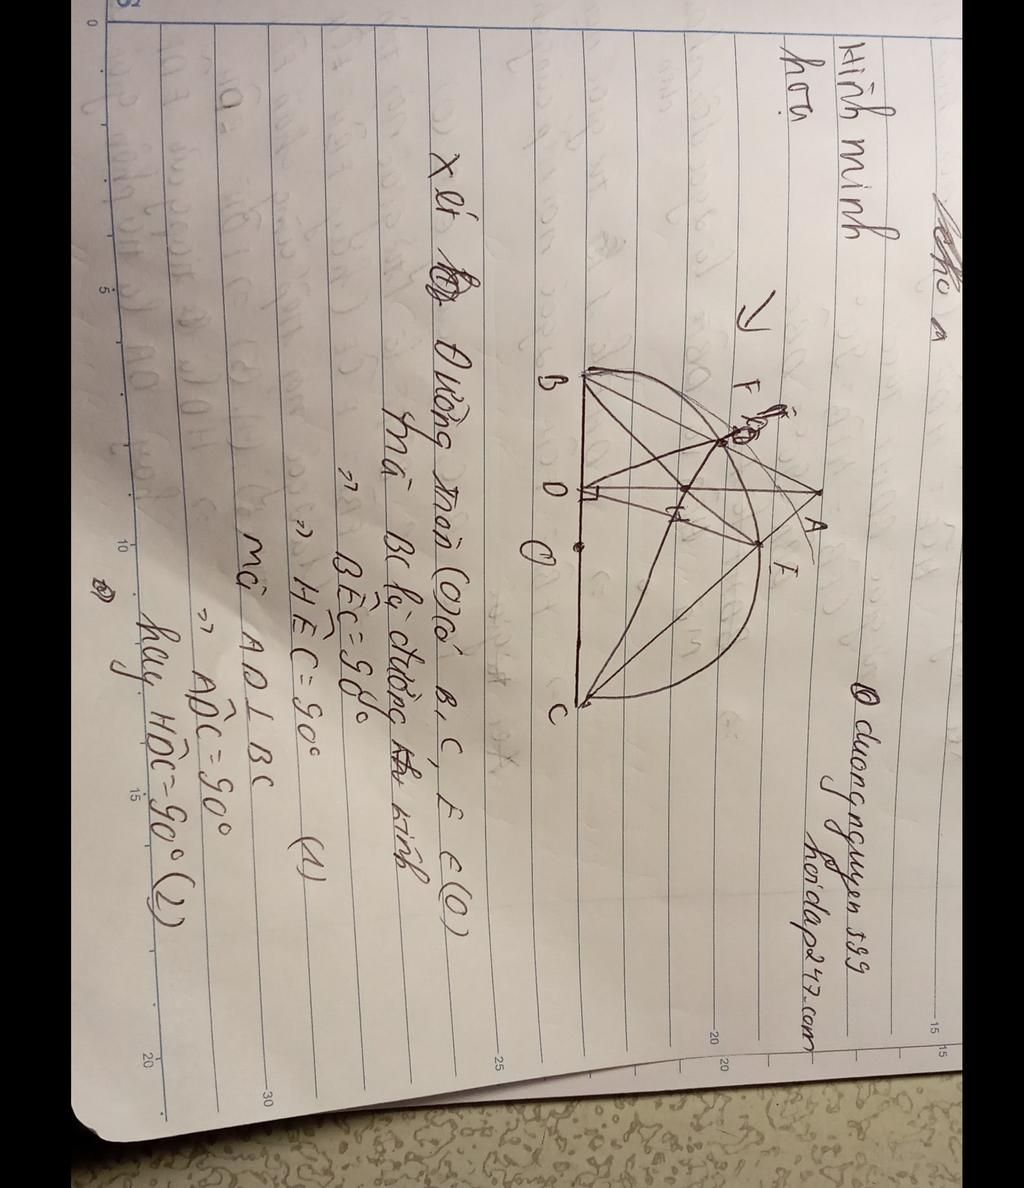 Hình minh
hoạ
duongnguyen599
hoidap247.com
F
A
E
H
B
D
O
C
Xét Đường tròn (O) có B, C, E ∈ (O)
mà BC là đường kính
=> BÊC = 90°
=> HÊC = 90° (1)
mà AD ⊥ BC
=> ADC = 90°
hay HDC = 90° (2)
0
5
10
15
20
15
15
20
20
25
30